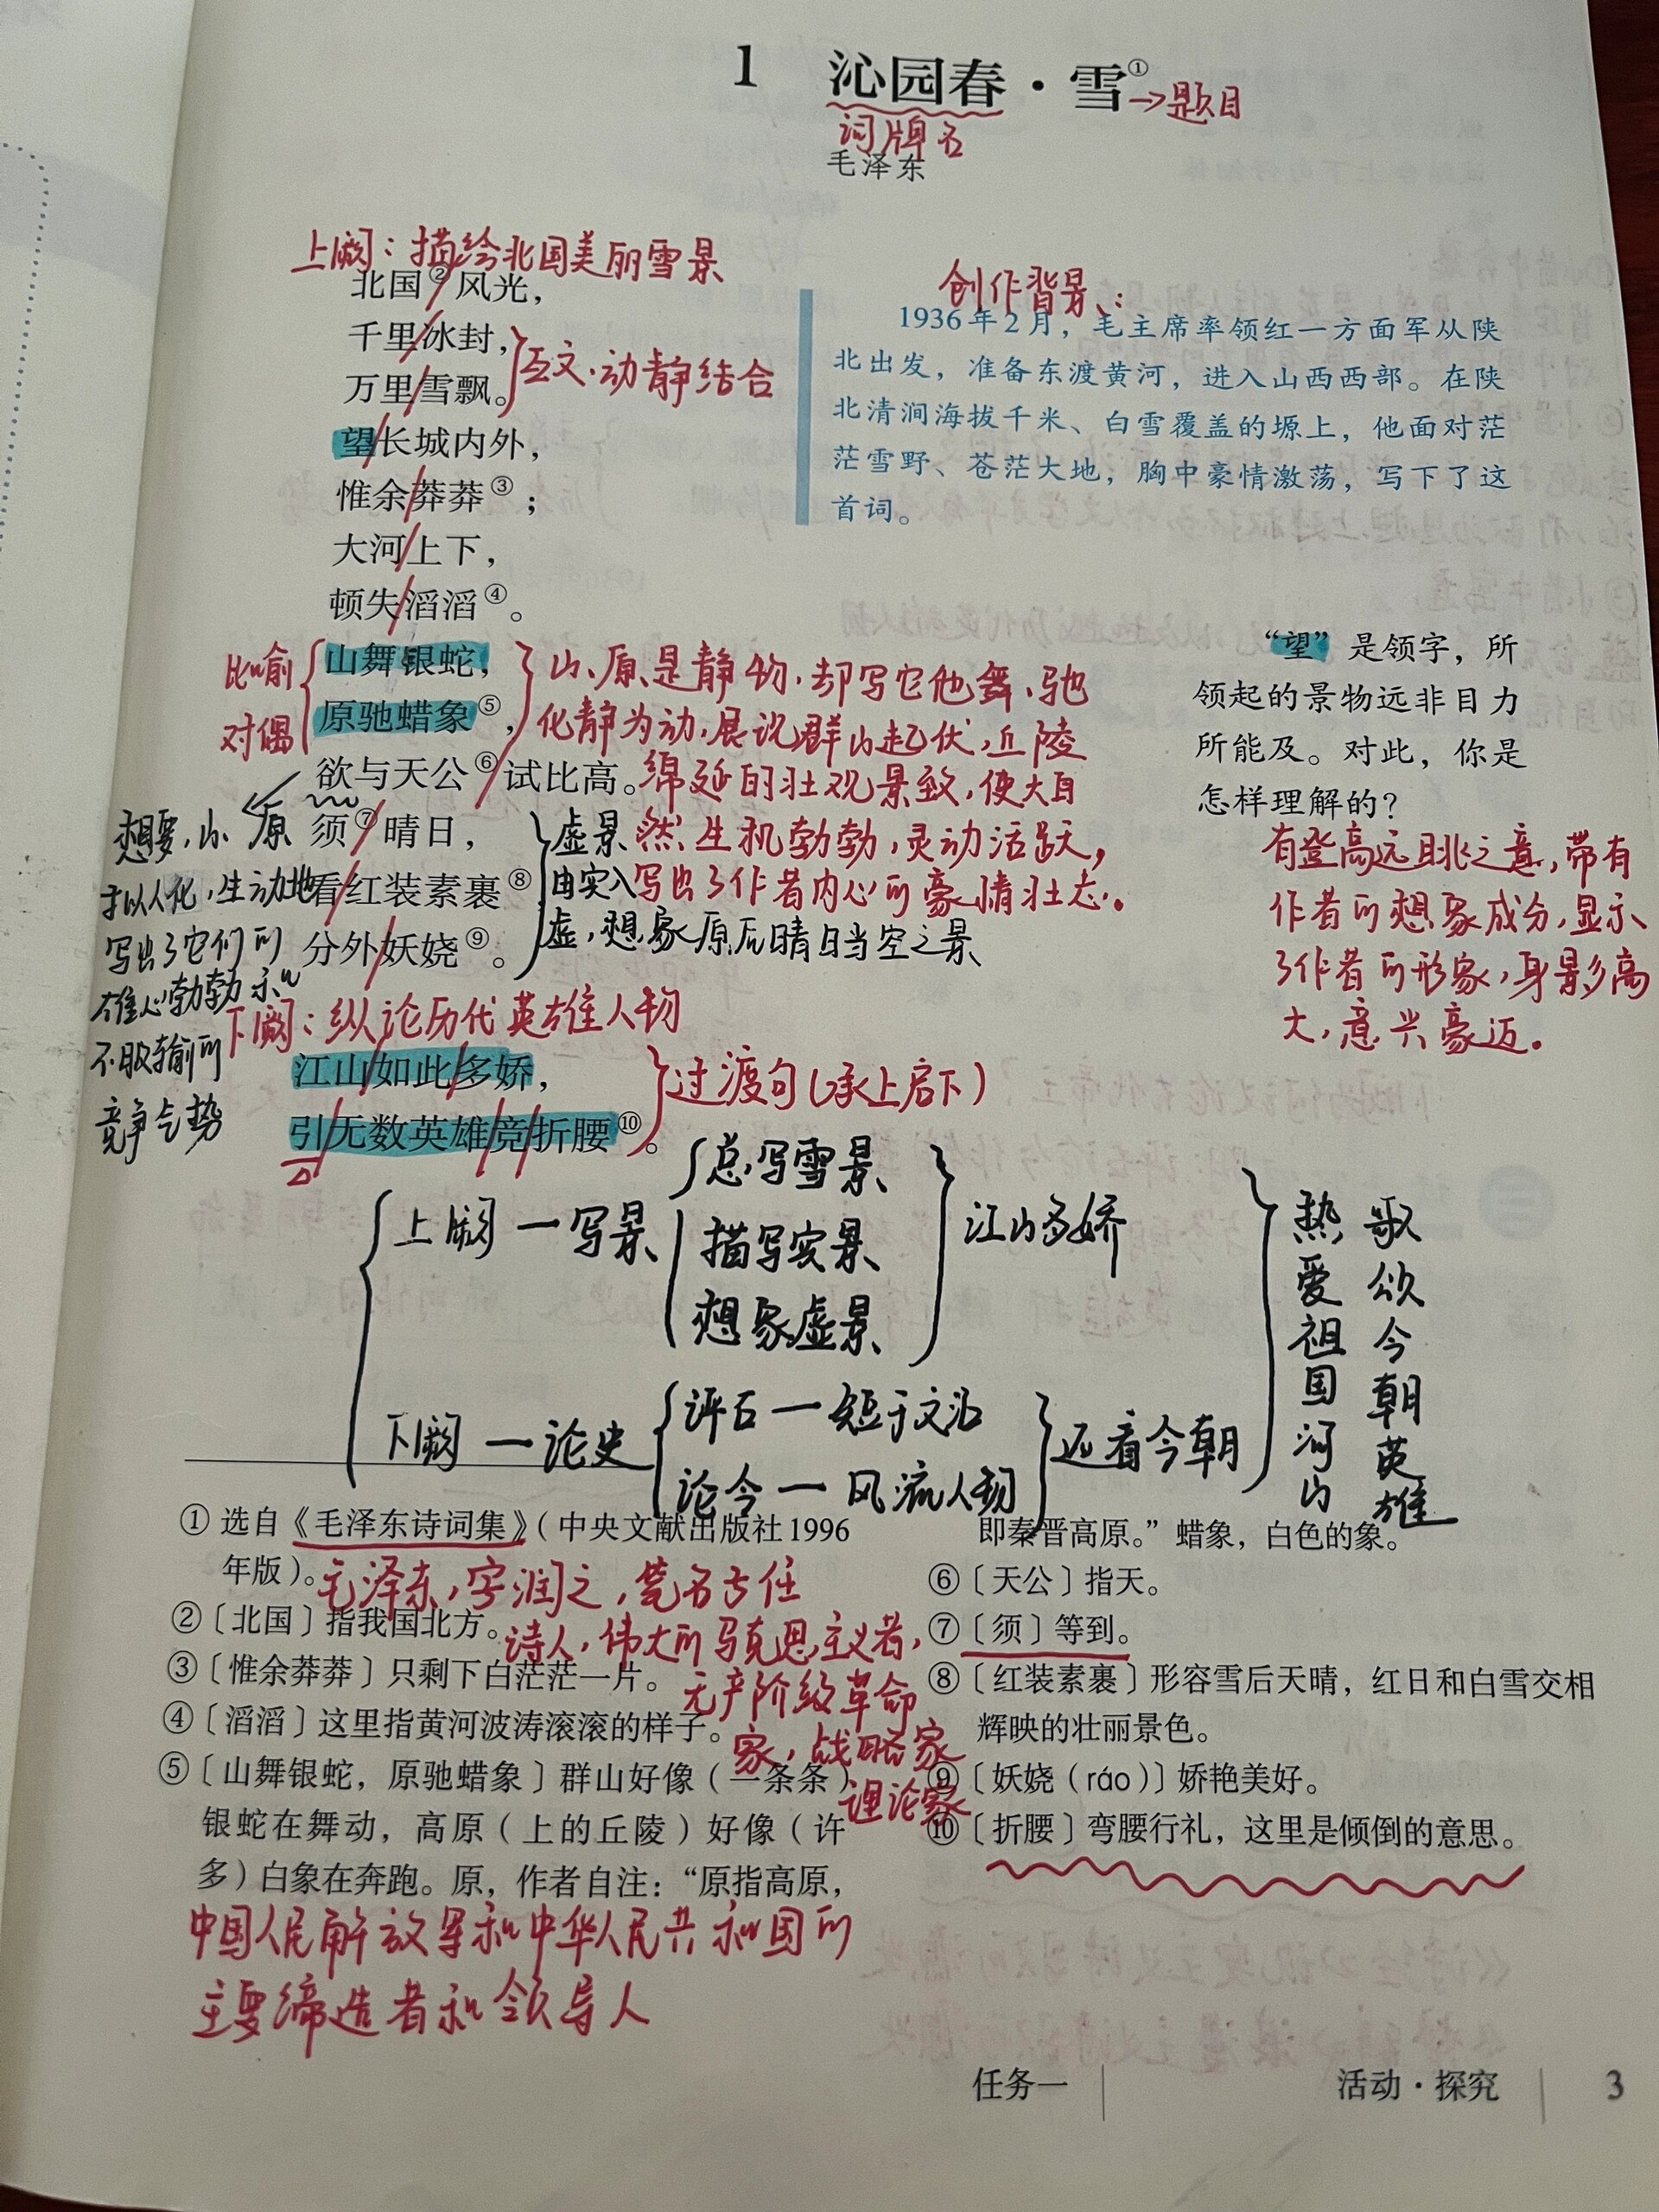 1 沁园春·雪①→题目
词牌名
毛泽东
上阕：描绘北国美丽雪景
北国②/风光，
千里/冰封，
万里/雪飘。
互文.动静结合
望/长城内外，
惟余/莽莽③；
大河/上下，
顿失/滔滔④。
比喻
对偶
山舞银蛇，
原驰蜡象⑤，
欲与天公⑥/试比高。
须⑦/晴日，
看/红装素裹⑧
分外/妖娆⑨。
山、原是静物，却写它他舞、驰
化静为动，展说群山起伏，丘陵
绵延的壮观景致，使大自
然生机勃勃，灵动活跃，
写出了作者内心的豪情壮志。
虚景
由实入
虚，想象原后晴日当空之景
想要，山、原
拟人化，生动地
写出了它们的
雄心勃勃和
不服输的
竞争气势
创作背景：
1936年2月，毛主席率领红一方面军从陕
北出发，准备东渡黄河，进入山西西部。在陕
北清涧海拔千米、白雪覆盖的塬上，他面对茫
茫雪野、苍茫大地，胸中豪情激荡，写下了这
首词。
“望”是领字，所
领起的景物远非目力
所能及。对此，你是
怎样理解的？
有登高远眺之意，带有
作者的想象成分，显示
了作者的形象，身影高
大，意兴豪迈。
下阕：纵论历代英雄人物
江山/如此/多娇，
引/无数英雄/竞/折腰⑩。
过渡句（承上启下）
上阕—写景
总写雪景
描写实景
想象虚景
江山多娇
下阕—论史
评古—短于文治
论今—风流人物
还看今朝
热爱祖国河山
歌颂今朝英雄
①选自《毛泽东诗词集》（中央文献出版社1996
年版）。
毛泽东，字润之，笔名子任
诗人，伟大的马克思主义者，
无产阶级革命
家，战略家
理论家
②〔北国〕指我国北方。
③〔惟余莽莽〕只剩下白茫茫一片。
④〔滔滔〕这里指黄河波涛滚滚的样子。
⑤〔山舞银蛇，原驰蜡象〕群山好像（一条条）
银蛇在舞动，高原（上的丘陵）好像（许
多）白象在奔跑。原，作者自注：“原指高原，
中国人民解放军和中华人民共和国的
主要缔造者和领导人
即秦晋高原。”蜡象，白色的象。
⑥〔天公〕指天。
⑦〔须〕等到。
⑧〔红装素裹〕形容雪后天晴，红日和白雪交相
辉映的壮丽景色。
⑨〔妖娆（ráo）〕娇艳美好。
⑩〔折腰〕弯腰行礼，这里是倾倒的意思。
任务一 | 活动·探究 | 3